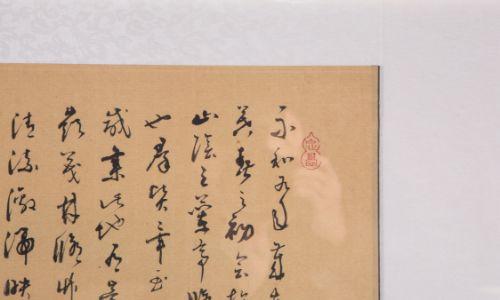 永和九年歲在
暮春之初會於
山陰之蘭亭脩
也羣賢畢至
咸集此地有崇
嶺茂林脩竹
清流激湍映